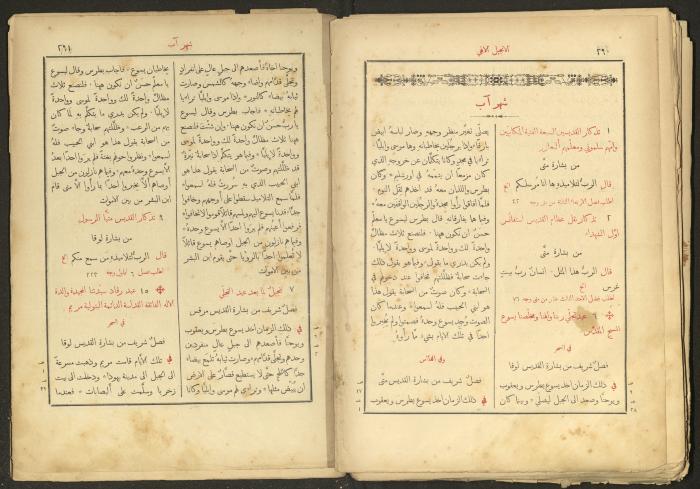 ٢٩٠
الانجيل الالهي
شهر آب
١ تذكار القديسين السبعة الفتية المكابيين
وامهم سلموني ومعلمهم ألعازار
من بشارة متى
قال الربّ لتلاميذه ها انا مرسلكم الخ
٢ تذكار نقل عظام القديس استفانس
اول الشهداء
من بشارة متى
قال الربّ هذا المثل. انسان ربّ بيت
غرس الخ
٦ عيد تجلّي ربنا والهنا ومخلصنا يسوع
المسيح المقدّس
في السحر
فصل شريف من بشارة القديس لوقا
في ذلك الزمان اخذ يسوع بطرس ويعقوب
ويوحنا وصعد الى الجبل ليصلّي * وبينما كان
يصلّي تغيّر منظر وجهه وصار لباسه ابيض
بارقًا * واذا برجلين يخاطبانه وهما موسى وايليا *
تراءيا في مجد وكانا يتكلّمان عن خروجه الذي
كان مزمعًا ان يتمّمه في اورشليم * وكان
بطرس واللذان معه قد اخذهم ثقل النوم *
فلما افاقوا رأوا مجده والرجلين الواقفين معه *
وفيما هما يفارقانه قال بطرس ليسوع يا معلّم
حسنٌ ان نكون ههنا * فلنصنع ثلاث مظالّ
واحدة لك وواحدة لموسى وواحدة لايليا *
ولم يكن يدري ما يقول * وفيما هو يقول ذلك
جاءت سحابة فظلّلتهم فخافوا عند دخولهم في
السحابة * وكان صوت من السحابة يقول هذا
هو ابني الحبيب فله اسمعوا * وعندما كان
الصوت وُجد يسوع وحده * فصمتوا ولم يخبروا
احدًا في تلك الايام بشيء ممّا رأوه
وفي القدّاس
فصل شريف من بشارة القديس متى
في ذلك الزمان اخذ يسوع بطرس ويعقوب
شهر آب
٢٩١
ويوحنا اخاه فأصعدهم الى جبل عالٍ على انفراد *
وتجلّى قدّامهم واضاء وجهه كالشمس وصارت
ثيابه بيضاء كالنور * واذا موسى وايليا تراءيا
لهم يخاطبانه * فأجاب بطرس وقال ليسوع
يا ربّ حسنٌ ان نكون ههنا * وان شئت فلنصنع
ههنا ثلاث مظالّ واحدة لك وواحدة لموسى
وواحدة لايليا * وفيما هو يتكلّم اذا سحابة نيّرة
قد ظلّلتهم وصوت من السحابة يقول هذا هو
ابني الحبيب الذي به سررت فله اسمعوا *
فلما سمع التلاميذ سقطوا على أوجههم وخافوا
جدًا * فدنا يسوع اليهم ولمسهم قائلاً قوموا لا تخافوا *
فرفعوا أعينهم فلم يروا احدًا الا يسوع وحده *
وفيما هم نازلون من الجبل اوصاهم يسوع قائلاً
لا تعلموا احدًا بالرؤيا حتى يقوم ابن البشر
من بين الاموات
٧ انجيل لما بعد عيد التجلّي
فصل شريف من بشارة القديس مرقس
في ذلك الزمان اخذ يسوع بطرس ويعقوب
ويوحنا فأصعدهم الى جبل عالٍ منفردين
وحدهم وتجلّى قدّامهم * وصارت ثيابه تلمع بيضاء
جدًا كالثلج حتى لا يستطيع قصّار على الارض
ان يبيّض مثلها * وتراءى لهم موسى وايليا وكانا
يخاطبان يسوع * فأجاب بطرس وقال ليسوع
يا معلّم حسنٌ ان نكون ههنا * فلنصنع ثلاث
مظالّ واحدة لك وواحدة لموسى وواحدة
لايليا * ولم يكن يدري ما يتكلّم به لما كان
بهم من الرعب * وظلّلتهم سحابة وجاء صوت
من السحابة يقول هذا هو ابني الحبيب فله
اسمعوا * ونظروا حولهم بغتة فلم يروا احدًا بعد الاّ
يسوع وحده معهم * وفيما هم نازلون من الجبل
أوصاهم ألاّ يخبروا احدًا بما رأوا الاّ متى قام
ابن البشر من بين الاموات
٩ تذكار القديس متيّا الرسول
من بشارة لوقا
قال الربّ لتلاميذه من سمع منكم الخ
١٥ عيد رقاد سيّدتنا المجيدة والدة
الاله الفائقة القداسة الدائمة البتولية مريم
في السحر
فصل شريف من بشارة القديس لوقا
في تلك الايام قامت مريم وذهبت مسرعة
الى الجبل الى مدينة يهوذا * ودخلت الى بيت
زخريا وسلّمت على أليصابات * فعندما